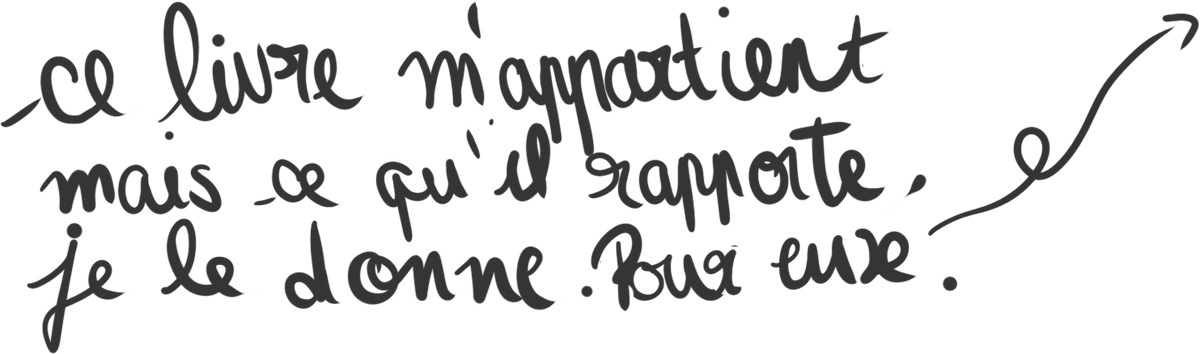 ce livre m'appartient
mais ce qu'il rapporte,
je le donne. Pour eux.